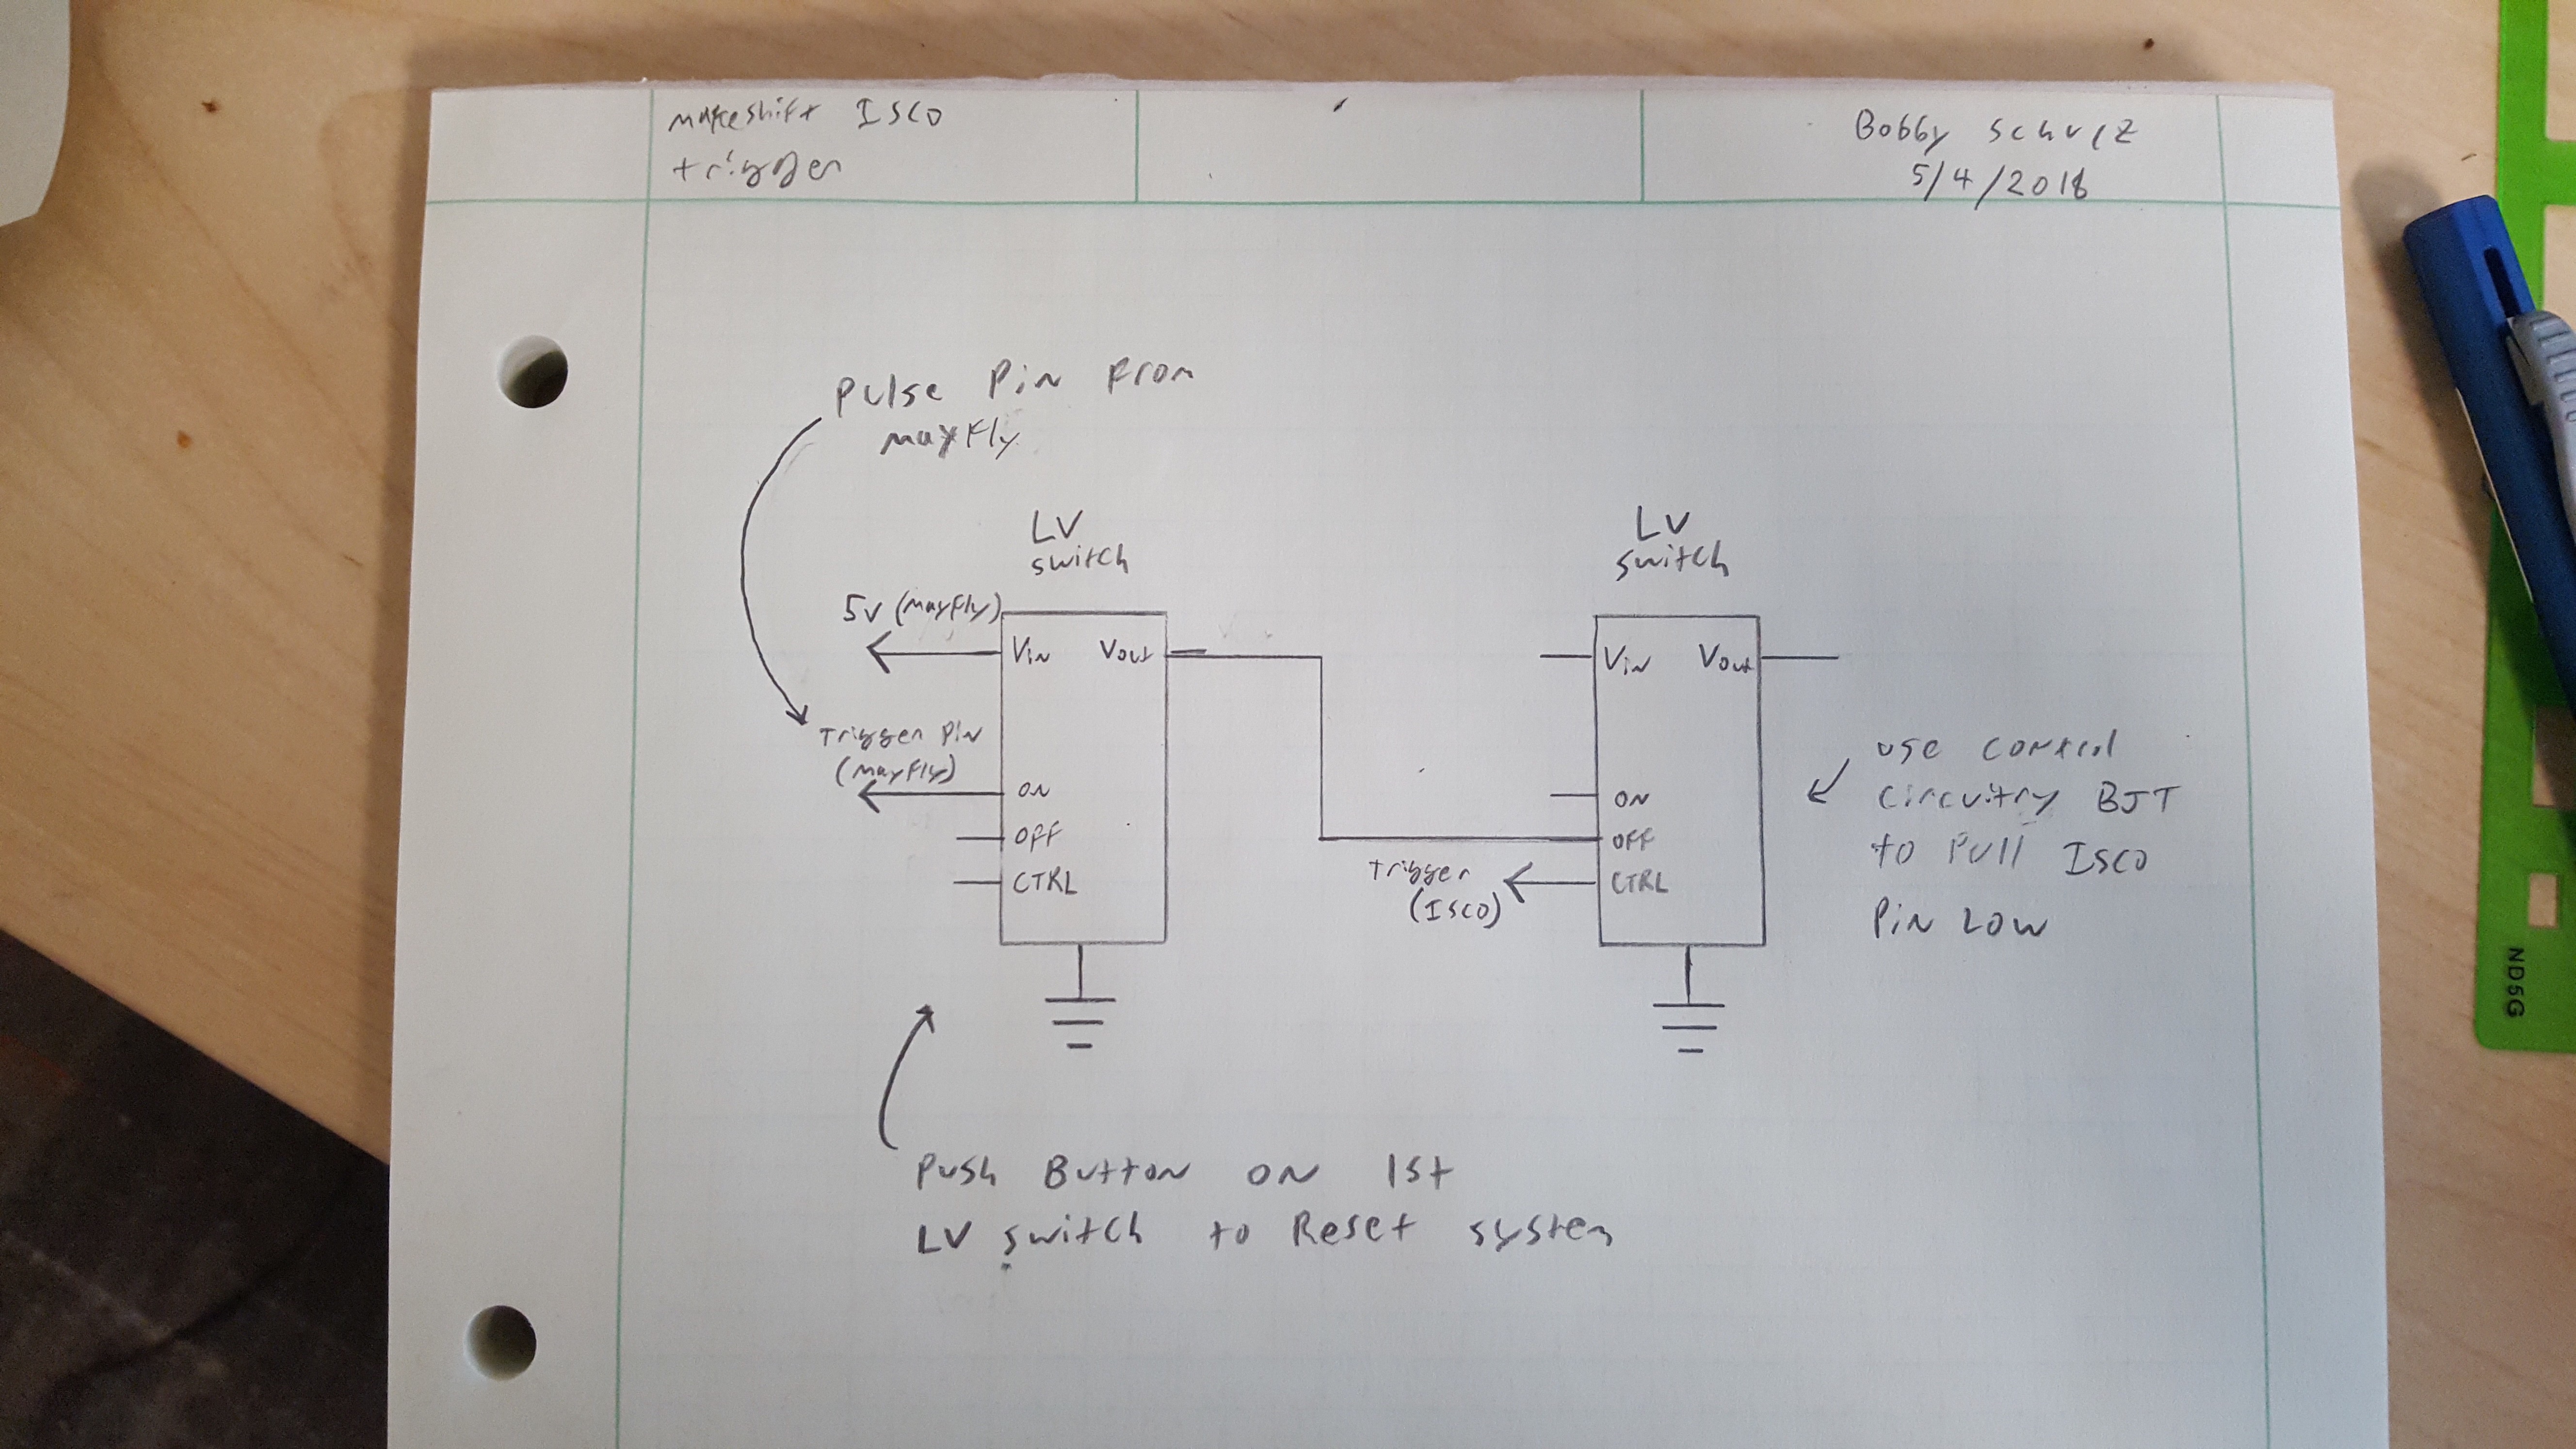 makeshift ISCO
trigger
Bobby Schulz
5/4/2018
Pulse Pin From
mayFly
LV
switch
LV
switch
5V (mayFly)
Vin Vout
Vin Vout
Trigger Pin
(mayFly)
ON
OFF
CTRL
ON
OFF
CTRL
Trigger
(ISCO)
use control
circuitry BJT
to Pull ISCO
Pin Low
Push Button on 1st
LV switch to Reset system
ND5G